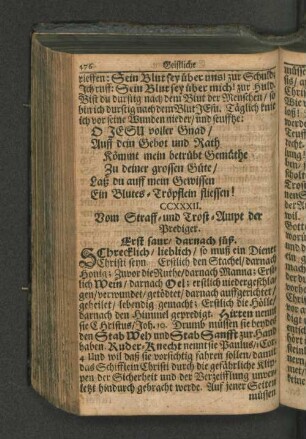 176 Geistliche
rieffen: Sein Blut sey über uns! zur Schuld/
Ich ruff: Sein Blut sey über mich! zur Huld.
Bist du durstig nach dem Blut der Menschen/ so
bin ich durstig nach dem Blut JEsu. Täglich knie
ich vor seine Wunden nieder/ und seufftze:
O JESU voller Gnad/
Auff dein Gebot und Rath
Kömmt mein betrübt Gemüthe
Zu deiner grossen Güte/
Laß du auff mein Gewissen
Ein Blutes-Tröpflein fliessen!
CCXXXII.
Vom Straff- und Trost-Ampt der
Prediger.
Erst saur/ darnach süß.
SChrecklich/ lieblich/ so muß ein Diener
Christi seyn. Erstlich den Stachel/ darnach
Honig: Zuvor die Ruthe/ darnach Manna: Erst-
lich Wein/ darnach Oel: erstlich niedergeschla-
gen/ verwundet/ getödtet/ darnach auffgerichtet/
geheilet/ lebendig gemacht: Erstlich die Hölle/
darnach den Himmel geprediget. Hirten nennet
sie Christus/ Joh. 10. Drumb müssen sie beyde
den Stab Weh und Stab Sanfft zur Hand
haben. Ruder-Knecht nennt sie Paulus/ 1. Cor.
4. Und wil daß sie vorsichtig fahren sollen/ damit
das Schifflein Christi durch die gefährliche Klip-
pen der Sicherheit und der Verzweifflung unver-
letzt hindurch gebracht werde. Auf jener Seiten
müssen